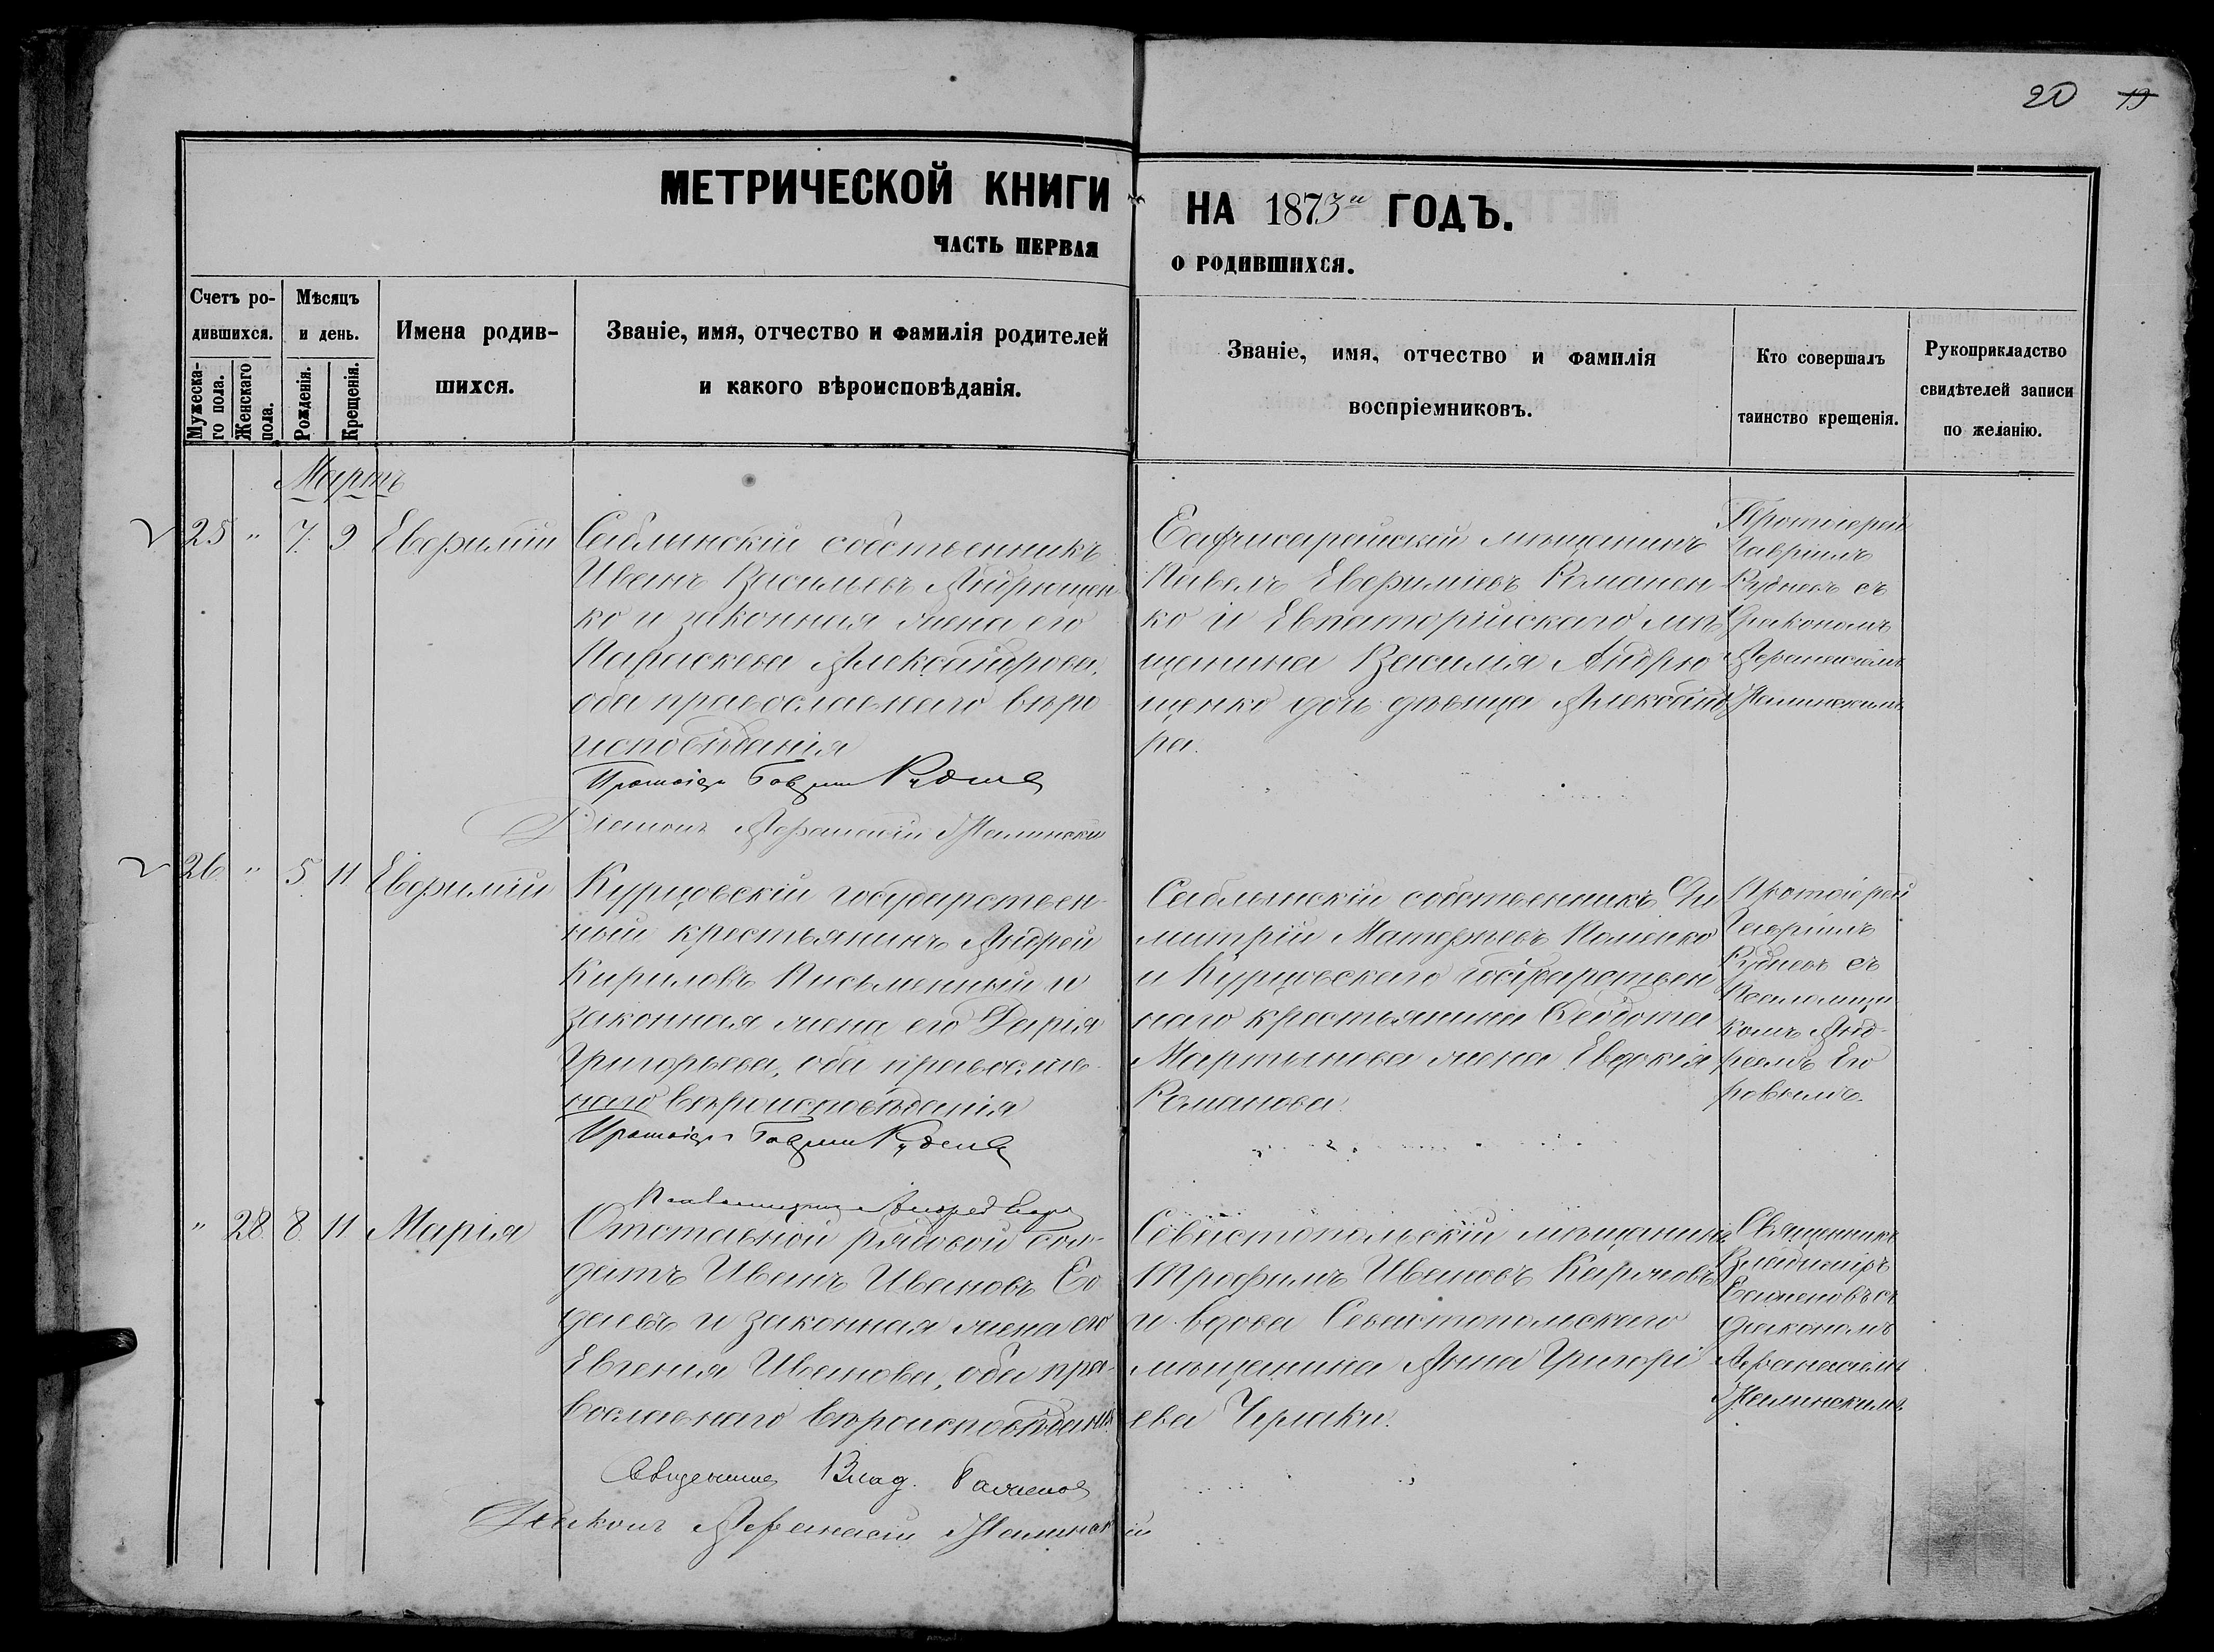 20 19
МЕТРИЧЕСКОЙ КНИГИ НА 1873й ГОДЪ.
ЧАСТЬ ПЕРВАЯ О РОДИВШИХСЯ.
Счетъ ро-
дившихся.
Мужеска-
го пола.
Женскаго
пола.
Мѣсяцъ
и день.
Рожденія.
Крещенія.
Имена родив-
шихся.
Званіе, имя, отчество и фамилія родителей
и какого вѣроисповѣданія.
Званіе, имя, отчество и фамилія
воспріемниковъ.
Кто совершалъ
таинство крещенія.
Рукоприкладство
свидѣтелей записи
по желанію.
Мартъ
25 " 7. 9 Евфимій
Саблинскій собственникъ
Иванъ Васильевъ Андрющен
ко и законная жена его
Параскева Александрова,
оба православнаго вѣро
исповѣданія
Протоіер Гавріил Руднев
Діаконъ Афанасій
Бахчисарайскій мѣщанинъ
Павелъ Евфиміевъ Романен
ко и Евпаторійскаго мѣ
щанина Василія Андрю
щенко дочь дѣвица Александ
ра.
Протіерей
Гавріилъ
Рудневъ съ
Діакономъ
Афанасіемъ
26 " 5 11 Евфимій
Курцовскій государствен
ный крестьянинъ Андрей
Кириловъ Письменный и
законная жена его Дарія
Григорьева, оба православ
наго вѣроисповѣданія
Протоіер Гавріил Руднев
Псаломщик Андрей
Саблынскій собственникъ Ди
митрій Матфѣевъ Поленко
и Курцовскаго государствен
наго крестьянина Федота
Мартынова жена Евдокія
Романова.
Протоіерей
Гавріилъ
Рудневъ съ
Псаломщи
комъ Анд-
реемъ Его
ровымъ.
" 28. 8. 11 Марія
Отставной рядовой сол-
датъ Иванъ Ивановъ Бо
даевъ и законная жена его
Евгенія Иванова, оба пра-
вославнаго вѣроисповѣданія.
Священник Влад. Баженов
Діаконъ Афанасій
Севастопольскій мѣщанинъ
Трофимъ Ивановъ Киричовъ
и вдова Севастопольскаго
мѣщанина Анна Григорі
ева Чераки.
Священникъ
Владиміръ
Баженовъ съ
діакономъ
Афанасіемъ